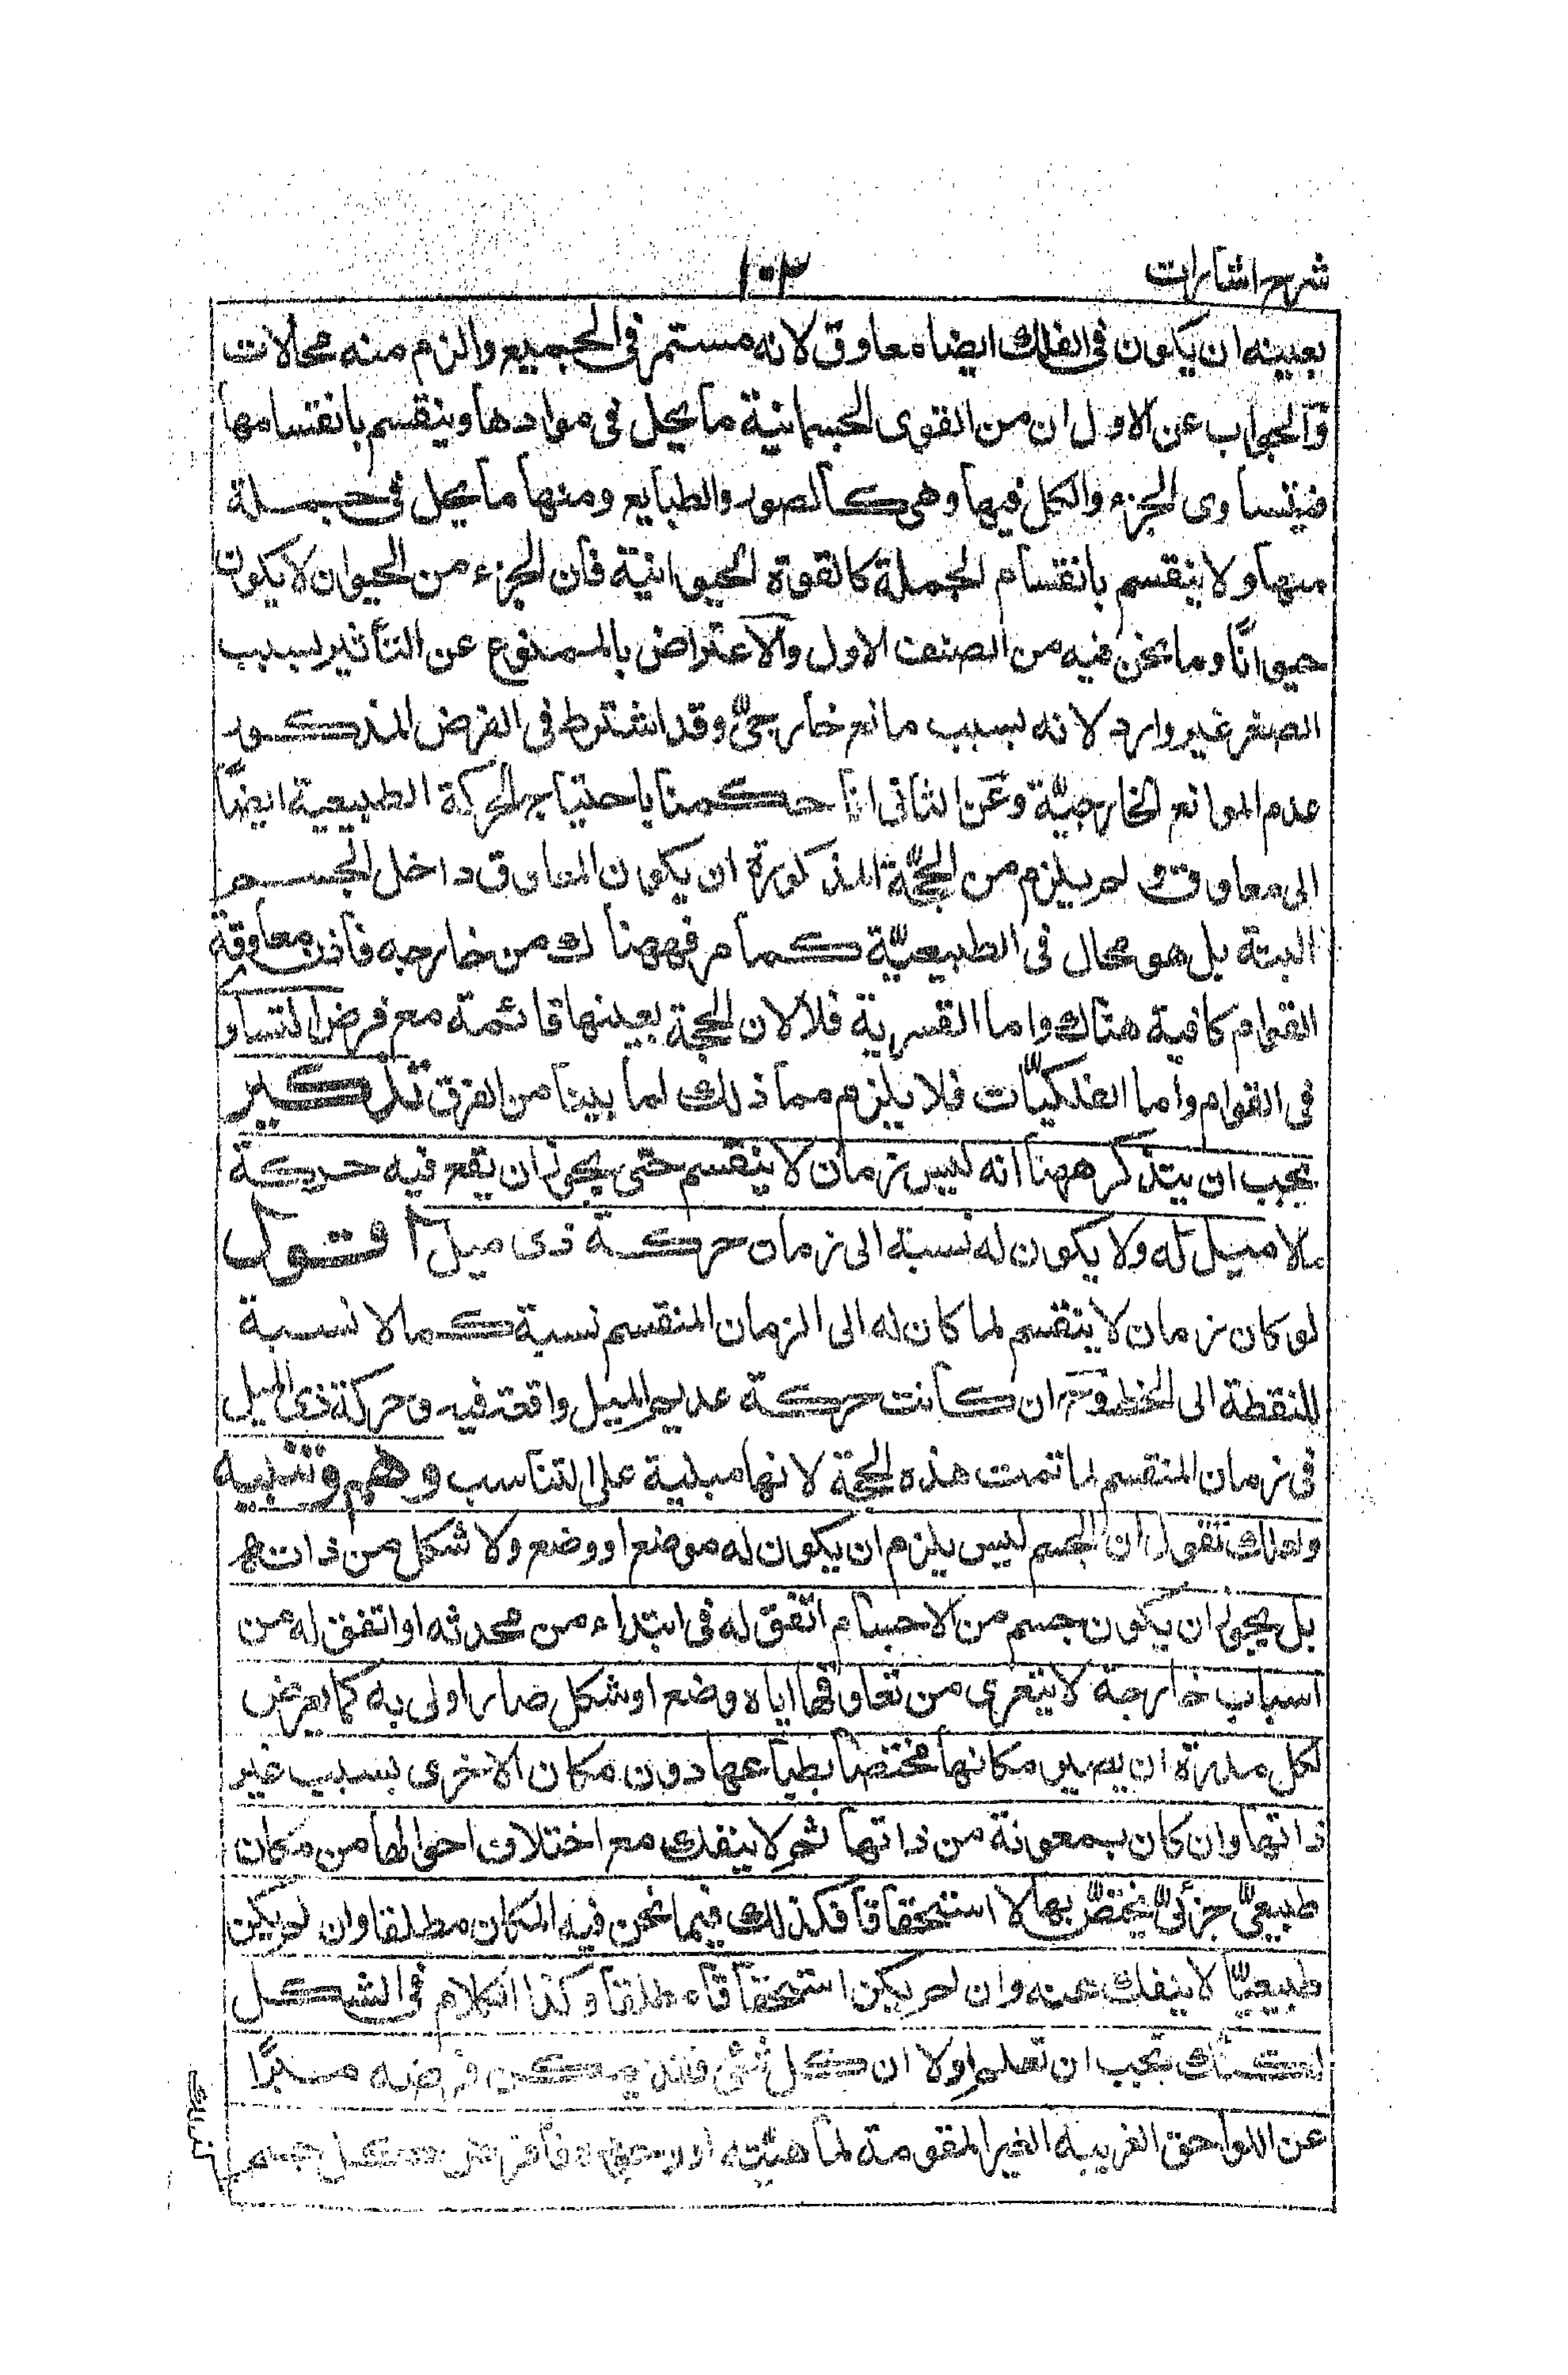 شرح اشارات
١٠٣
بعينه ان يكون فى الفلك ايضا معاوق لانه مستمر فى الجميع والزم منه محالات
والجواب عن الاول ان من القوى الجسمانية ما يحل فى موادها وينقسم بانقسامها
فيتساوى الجزء والكل فيها وهى كالصور والطبايع ومنها ما يحل فى جملة
منها ولا ينقسم بانقسام الجملة كالقوة الحيوانية فان الجزء من الحيوان لا يكون
حيوانًا وما نحن فيه من الصنف الاول والاعتراض بالممنوع عن التأثير بسبب
الصغر غير وارد لانه بسبب مانع خارجىّ وقد اشترط فى الفرض المذكور
عدم الموانع الخارجيّة وعن الثانى انا حكمنا باحتياج الحركة الطبيعية ايضًا
الى معاوق و لم يلزم من الحجّة المذكورة ان يكون المعاوق داخل الجسم
البتة بل هو محال فى الطبيعيّة كما مر فههنا ك من خارجه فاذن معاوقة
القوام كافية هناك واما القسرية فلا لان الحجة بعينها قائمة مع فرض التساو
فى القوام واما الفلكيّات فلا يلزم مما ذلك لما بينا من الفرق تذكير
يجب ان يتذكر ههنا انه ليس زمان لا ينقسم حتى يجوز ان يقع فيه حركة
مالا ميل له ولا يكون له نسبة الى زمان حركة ذى ميل اقول
لو كان زمان لا ينقسم لما كان له الى الزمان المنقسم نسبة كما لا نسبة
للنقطة الى الخط وح ان كانت حركة عديم الميل واقعة فيه و حركة ذى الميل
فى زمان المنقسم لما تمت هذه الحجة لانها مبنية على التناسب وهم وتنبيه
ولعلك تقول ان الجسم ليس يلزم ان يكون له موضع او وضع ولا شكل من ذاته
بل يجوز ان يكون جسم من الاجسام اتّفق له فى ابتداء من محدثه او اتفق له من
اسباب خارجة لا يتعرى من تعاوقها اياه وضع او شكل صار اولى به كما يعرض
لكل مدرة ان يصير مكانها مختصًا بطباعها دون مكان الاخرى بسبب غير
ذاتها وان كان بمعونة من ذاتها ثم لا ينفك مع اختلاف احوالها من مكان
طبيعىّ جزئىّ يختصّ بها لا استحقاقا فكذلك فيما نحن فيه المكان مطلقا وان لم يكن
طبيعيّا لا ينفك عنه وان لم يكن استحقاقا مطلقا وكذا الكلام فى الشكل
لكنك يجب ان تعلم اولا ان كل شئ فقد يمكن فرضه مبرًّا
عن اللواحق الغريبة الغير المقومة لماهيته او وجوده فافرض كل جسم